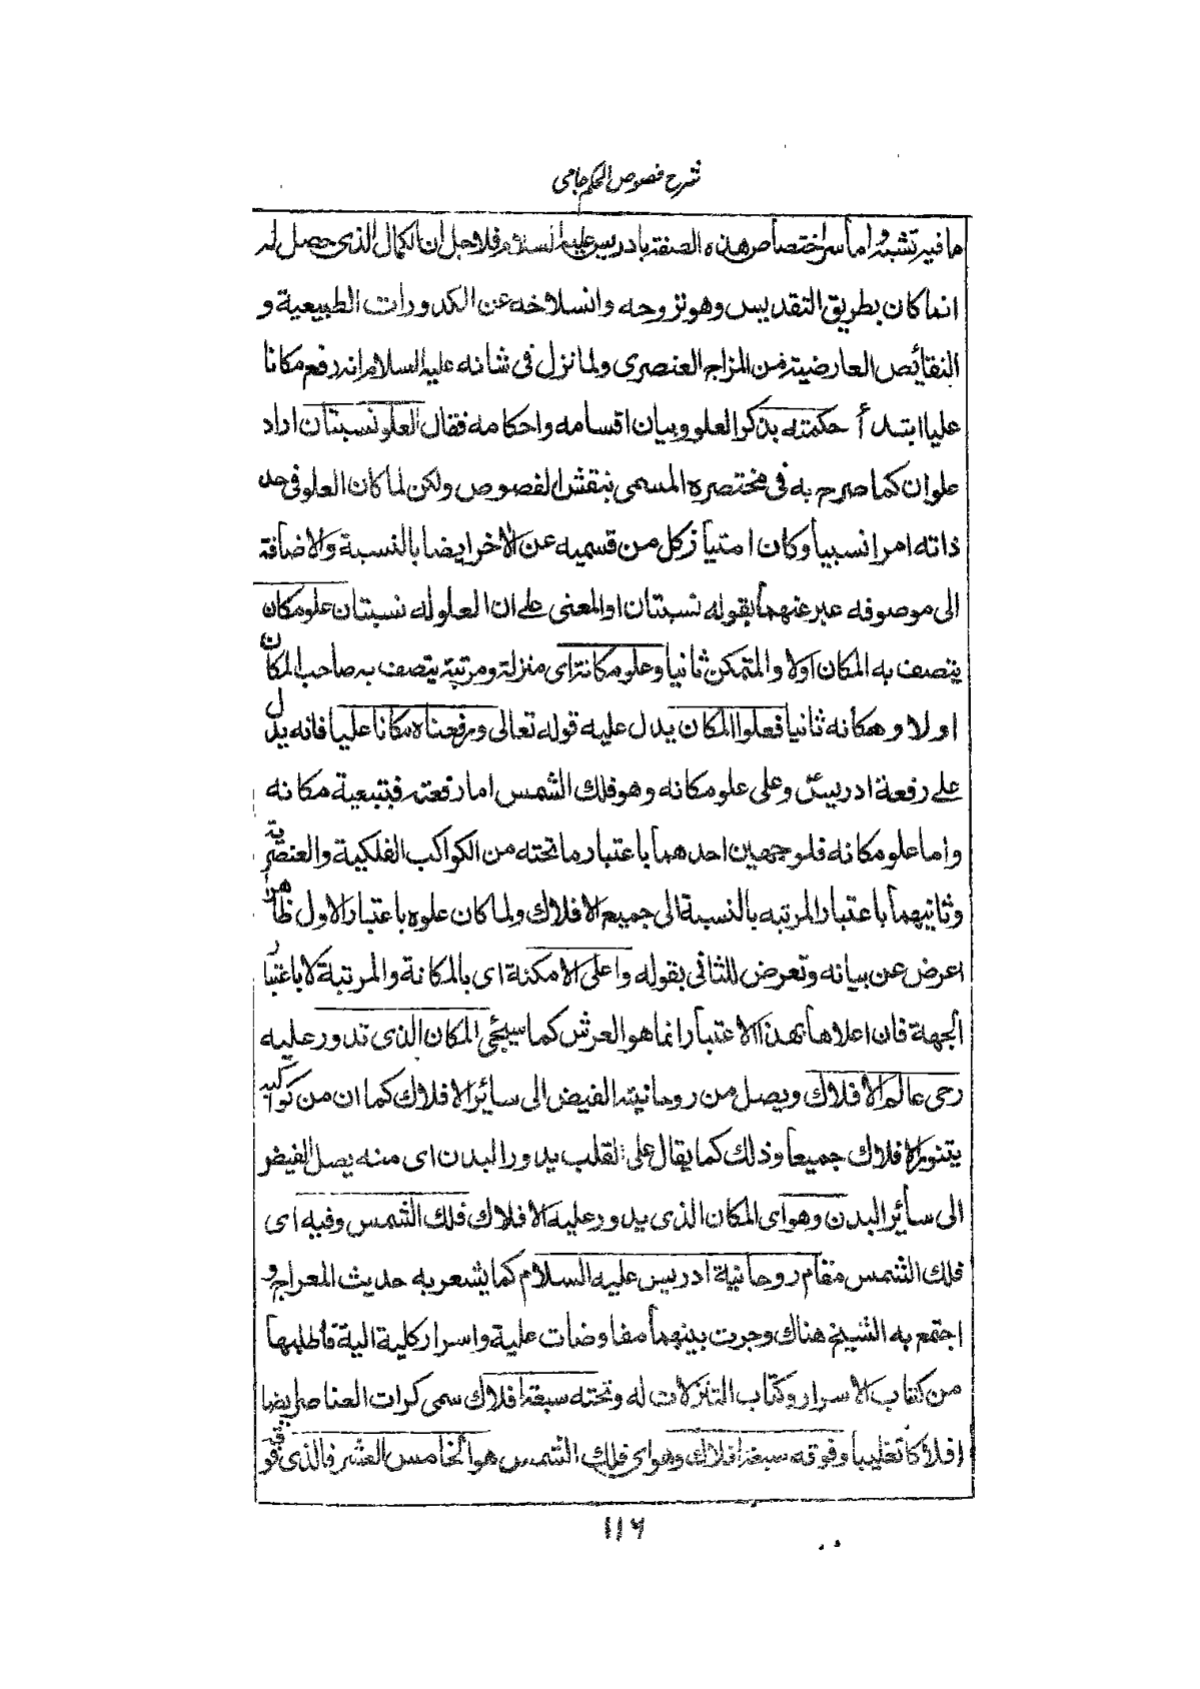 شرح فصوص الحكم جامى
ما فيه تشبيه واما سر اختصاص هذه الصفة بادريس عليه السلام فلاجل ان الكمال الذى حصل له
انما كان بطريق التقديس وهو تروحه وانسلاخه عن الكدورات الطبيعية و
النقائص العارضية من المزاج العنصرى ولما نزل فى شانه عليه السلام انه رفع مكانا
عليا ابتدأ حكمته بذكر العلو وبيان اقسامه واحكامه فقال العلو نسبتان اراد
علوان كما صرح به فى مختصره المسمى بنقش الفصوص ولكن لما كان العلو فى حد
ذاته امرا نسبيا وكان امتياز كل من قسميه عن الاخر ايضا بالنسبة والاضافة
الى موصوفه عبر عنهما بقوله نسبتان او المعنى على ان العلو له نسبتان علو مكان
يتصف به المكان اولا والمتمكن ثانيا وعلو مكانة اى منزلة ومرتبة يتصف به صاحب المكان
اولا و مكانه ثانيا فعلو المكان يدل عليه قوله تعالى ورفعناه مكانا عليا فانه يدل
على رفعة ادريس وعلى علو مكانه وهو فلك الشمس اما رفعته فبتبعية مكانه
واما علو مكانه فلوجهين احدهما باعتبار ما تحته من الكواكب الفلكية والعنصرية
وثانيهما باعتبار المرتبه بالنسبة الى جميع الافلاك ولما كان علوه باعتبار الاول ظاهرا
اعرض عن بيانه وتعرض للثانى بقوله واعلى الامكنة اى بالمكانة والمرتبة لا باعتبار
الجهة فان اعلاها بهذا الاعتبار انما هو العرش كما سيجئ المكان الذى تدور عليه
رحى عالم الافلاك ويصل من روحانيته الفيض الى سائر الافلاك كما ان من كوكبه
يتنور الافلاك جميعا وذلك كما يقال على القلب يدور البدن اى منه يصل الفيض
الى سائر البدن وهو اى المكان الذى يدور عليه الافلاك فلك الشمس وفيه اى
فلك الشمس مقام روحانية ادريس عليه السلام كما يشعر به حديث المعراج و
اجتمع به الشيخ هناك وجرت بينهما مفاوضات علية واسرار كلية الية فاطلبها
من كتاب الاسرار وكتاب التنزلات له وتحته سبعة افلاك سمى كرات العناصر ايضا
افلاكا تغليبا وفوقه سبعة افلاك وهو اى فلك الشمس هو الخامس العشر فالذى فوقه
۱۱۶